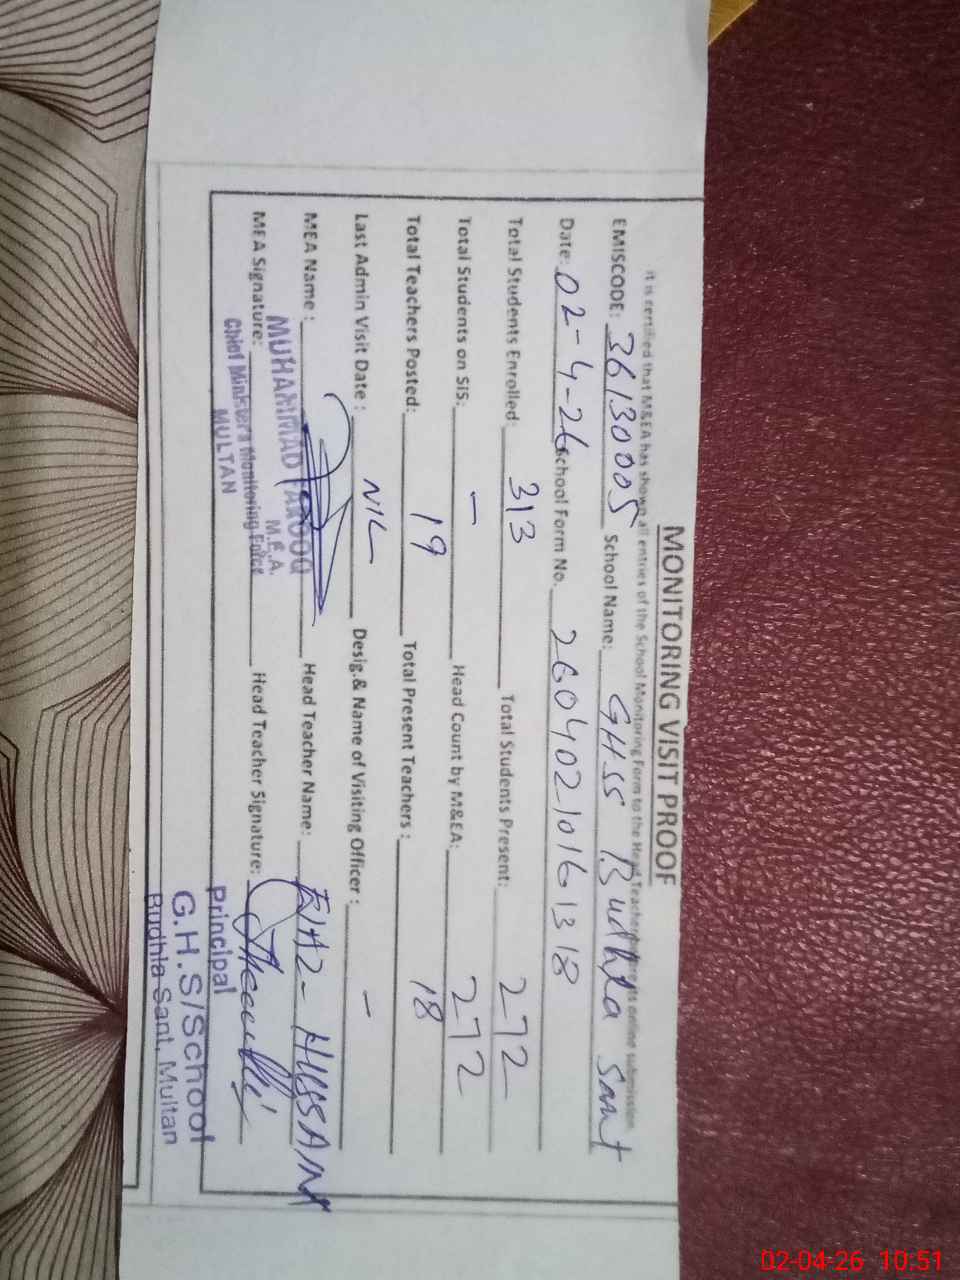 MONITORING VISIT PROOF
It is certified that M&EA has shown all entries of the School Monitoring Form to the Head Teacher before its online submission
EMISCODE: 36130005 School Name: GHSS Budhla Sant
Date: 02-4-26 School Form No. 26040210161318
Total Students Enrolled: 313 Total Students Present: 272
Total Students on SIS: - Head Count by M&EA: 272
Total Teachers Posted: 19 Total Present Teachers: 18
Last Admin Visit Date: NIL Desig.& Name of Visiting Officer: -
MEA Name: Head Teacher Name: HUSSAIN
MEA Signature: Head Teacher Signature:
MUHAMMAD FAROOQ
M.E.A.
Chief Minister's Monitoring Force
MULTAN
Principal
G.H.S/School
Budhla Sant, Multan
02-04-26 10:51